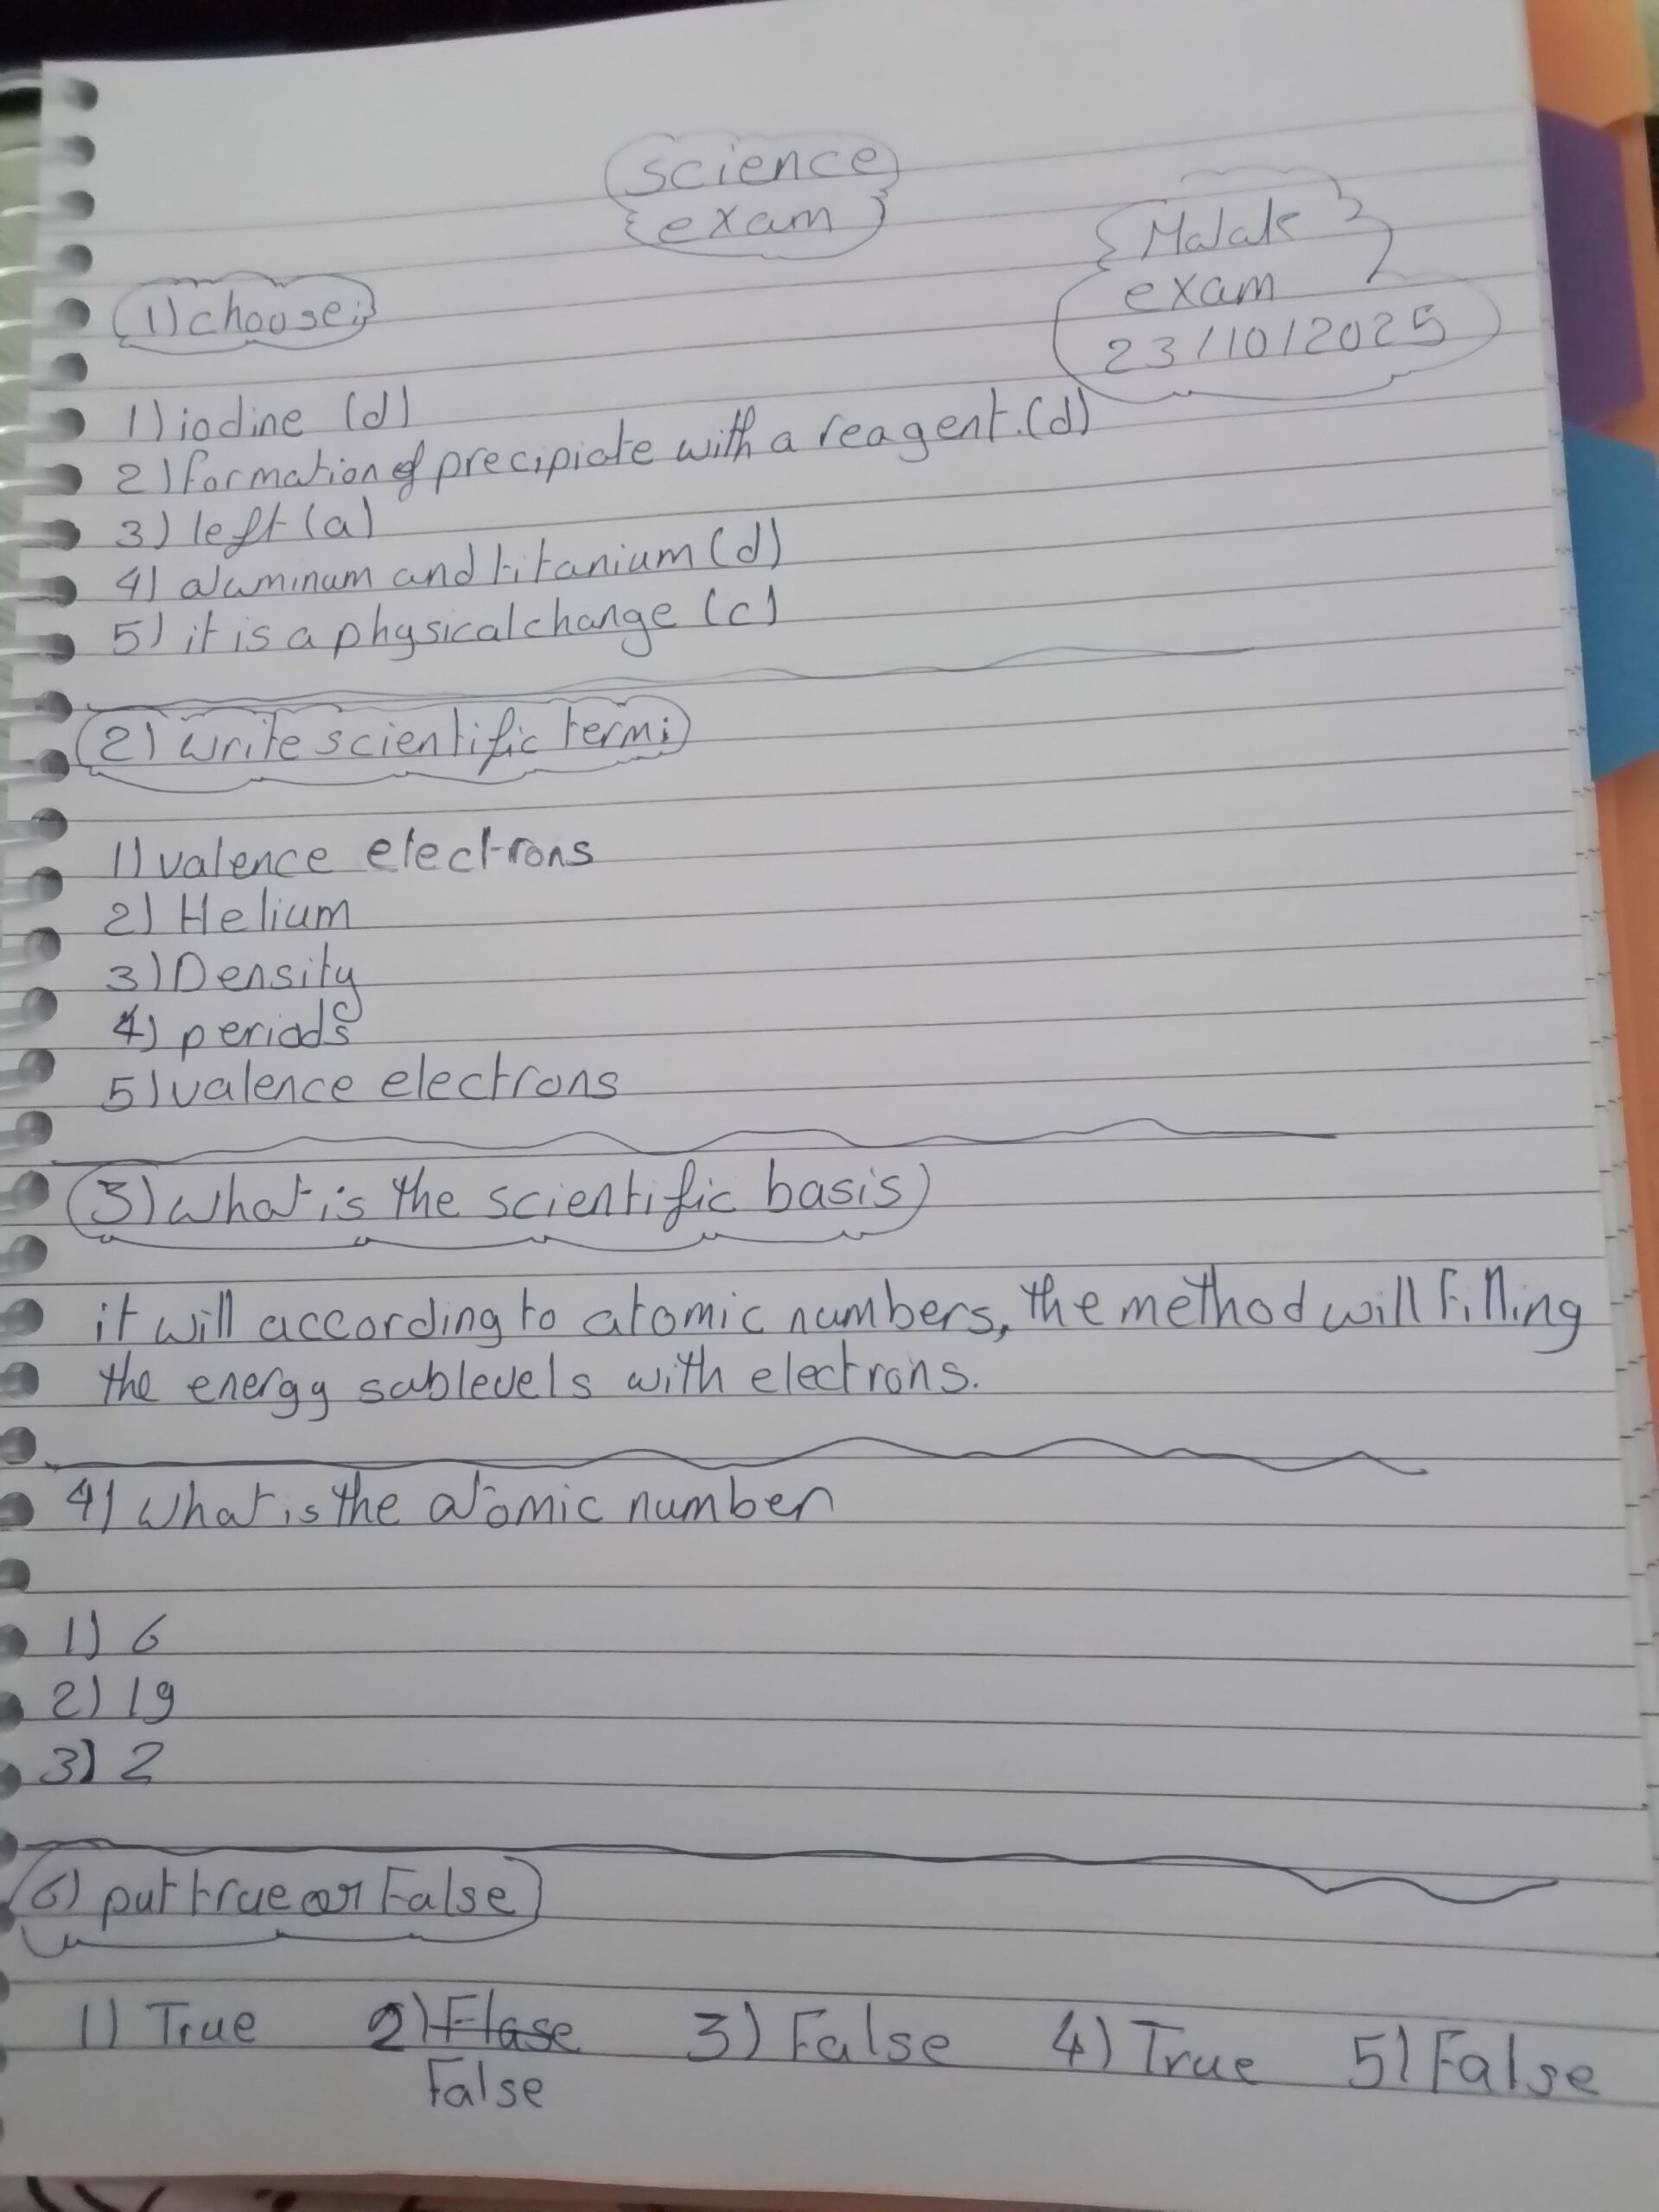 science
exam
Malak
exam
23/10/2025
1) choose;
1) iodine (d)
2) formation of precipiate with a reagent. (d)
3) left (a)
4) aluminum and titanium (d)
5) it is a physical change (c)
2) write scientific term;
1) valence electrons
2) Helium
3) Density
4) periods
5) valence electrons
3) what is the scientific basis
it will according to atomic numbers, the method will filling
the energy sublevels with electrons.
4) What is the atomic number
1) 6
2) 19
3) 2
6) put true or False
1) True 2) Flase 3) False 4) True 5) False
False